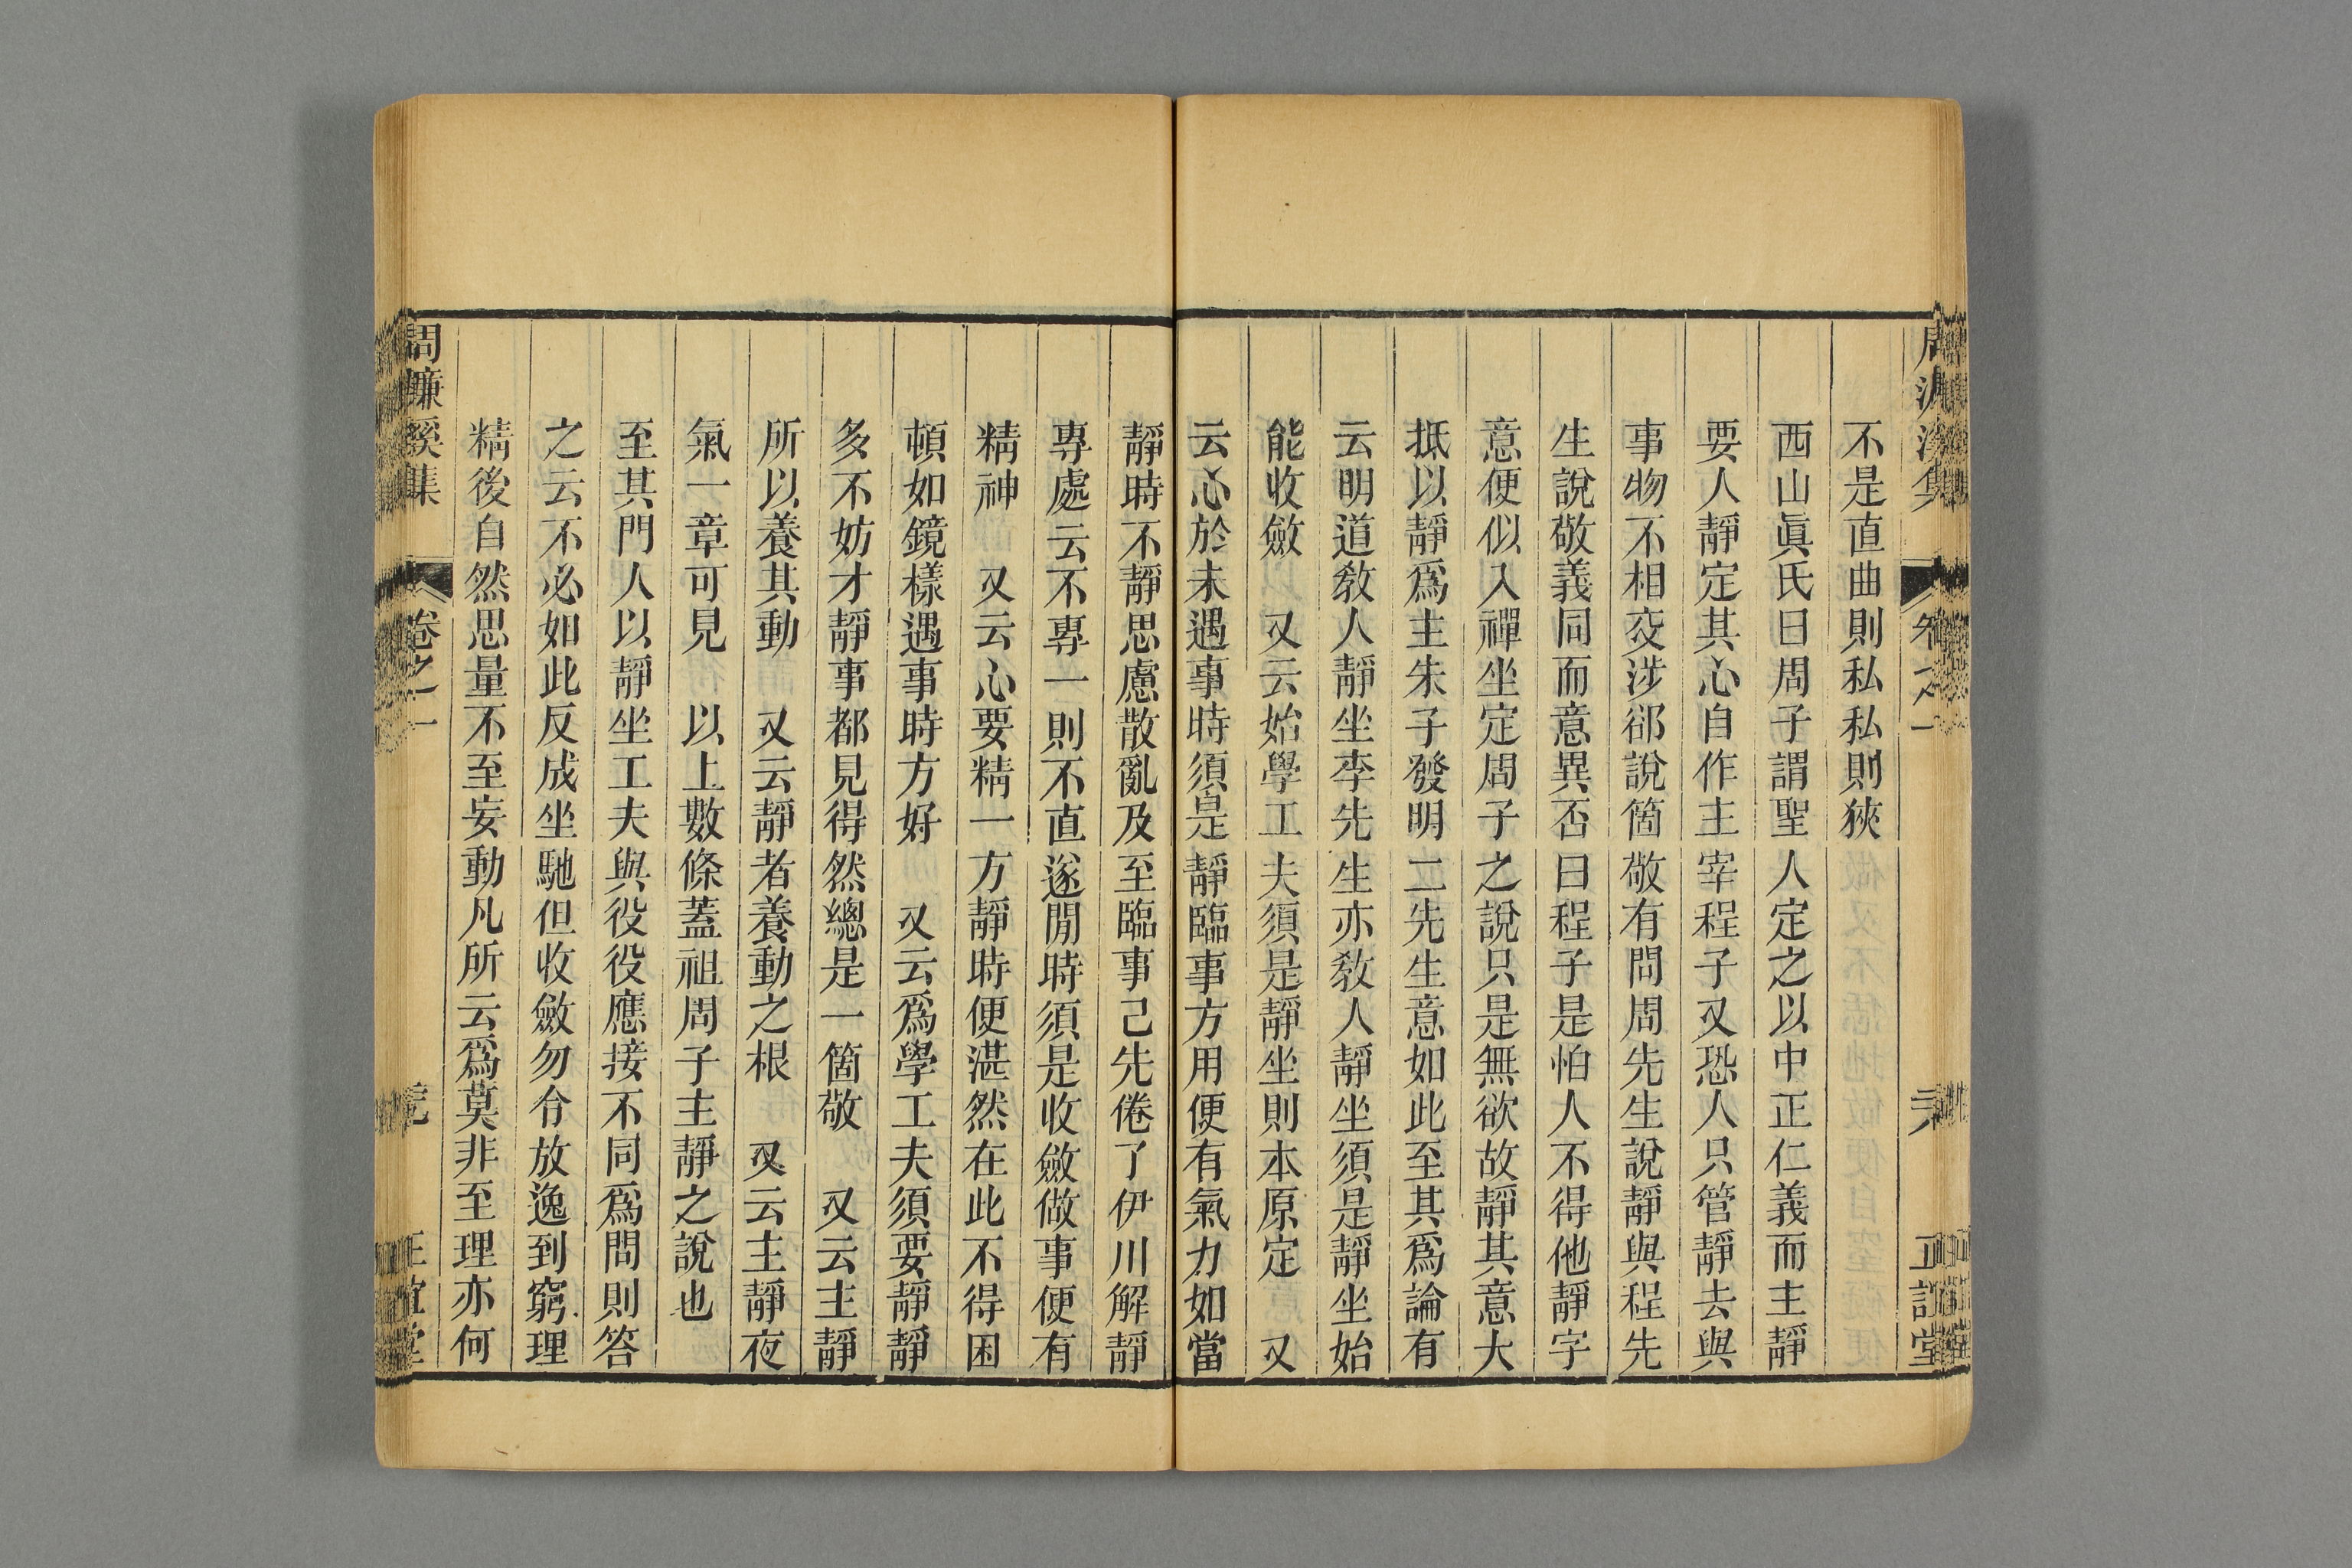 不是直曲則私私則狹
西山眞氏曰周子謂聖人定之以中正仁義而主靜
要人靜定其心自作主宰程子又恐人只管靜去與
事物不相交涉郤說箇敬有問周先生說靜與程先
生說敬義同而意異否曰程子是怕人不得他靜字
意便似入禪坐定周子之說只是無欲故靜其意大
抵以靜爲主朱子發明二先生意如此至其爲論有
云明道敎人靜坐李先生亦敎人靜坐須是靜坐始
能收斂 又云始學工夫須是靜坐則本原定 又
云心於未遇事時須是靜臨事方用便有氣力如當
靜時不靜思慮散亂及至臨事己先倦了伊川解靜
專處云不專一則不直遂閒時須是收斂做事便有
精神 又云心要精一方靜時便湛然在此不得困
頓如鏡樣遇事時方好 又云爲學工夫須要靜靜
多不妨才靜事都見得然總是一箇敬 又云主靜
所以養其動 又云靜者養動之根 又云主靜夜
氣一章可見 以上數條蓋祖周子主靜之說也
至其門人以靜坐工夫與役役應接不同爲問則答
之云不必如此反成坐馳但收斂勿令放逸到窮理
精後自然思量不至妄動凡所云爲莫非至理亦何
周濂溪集 卷之一